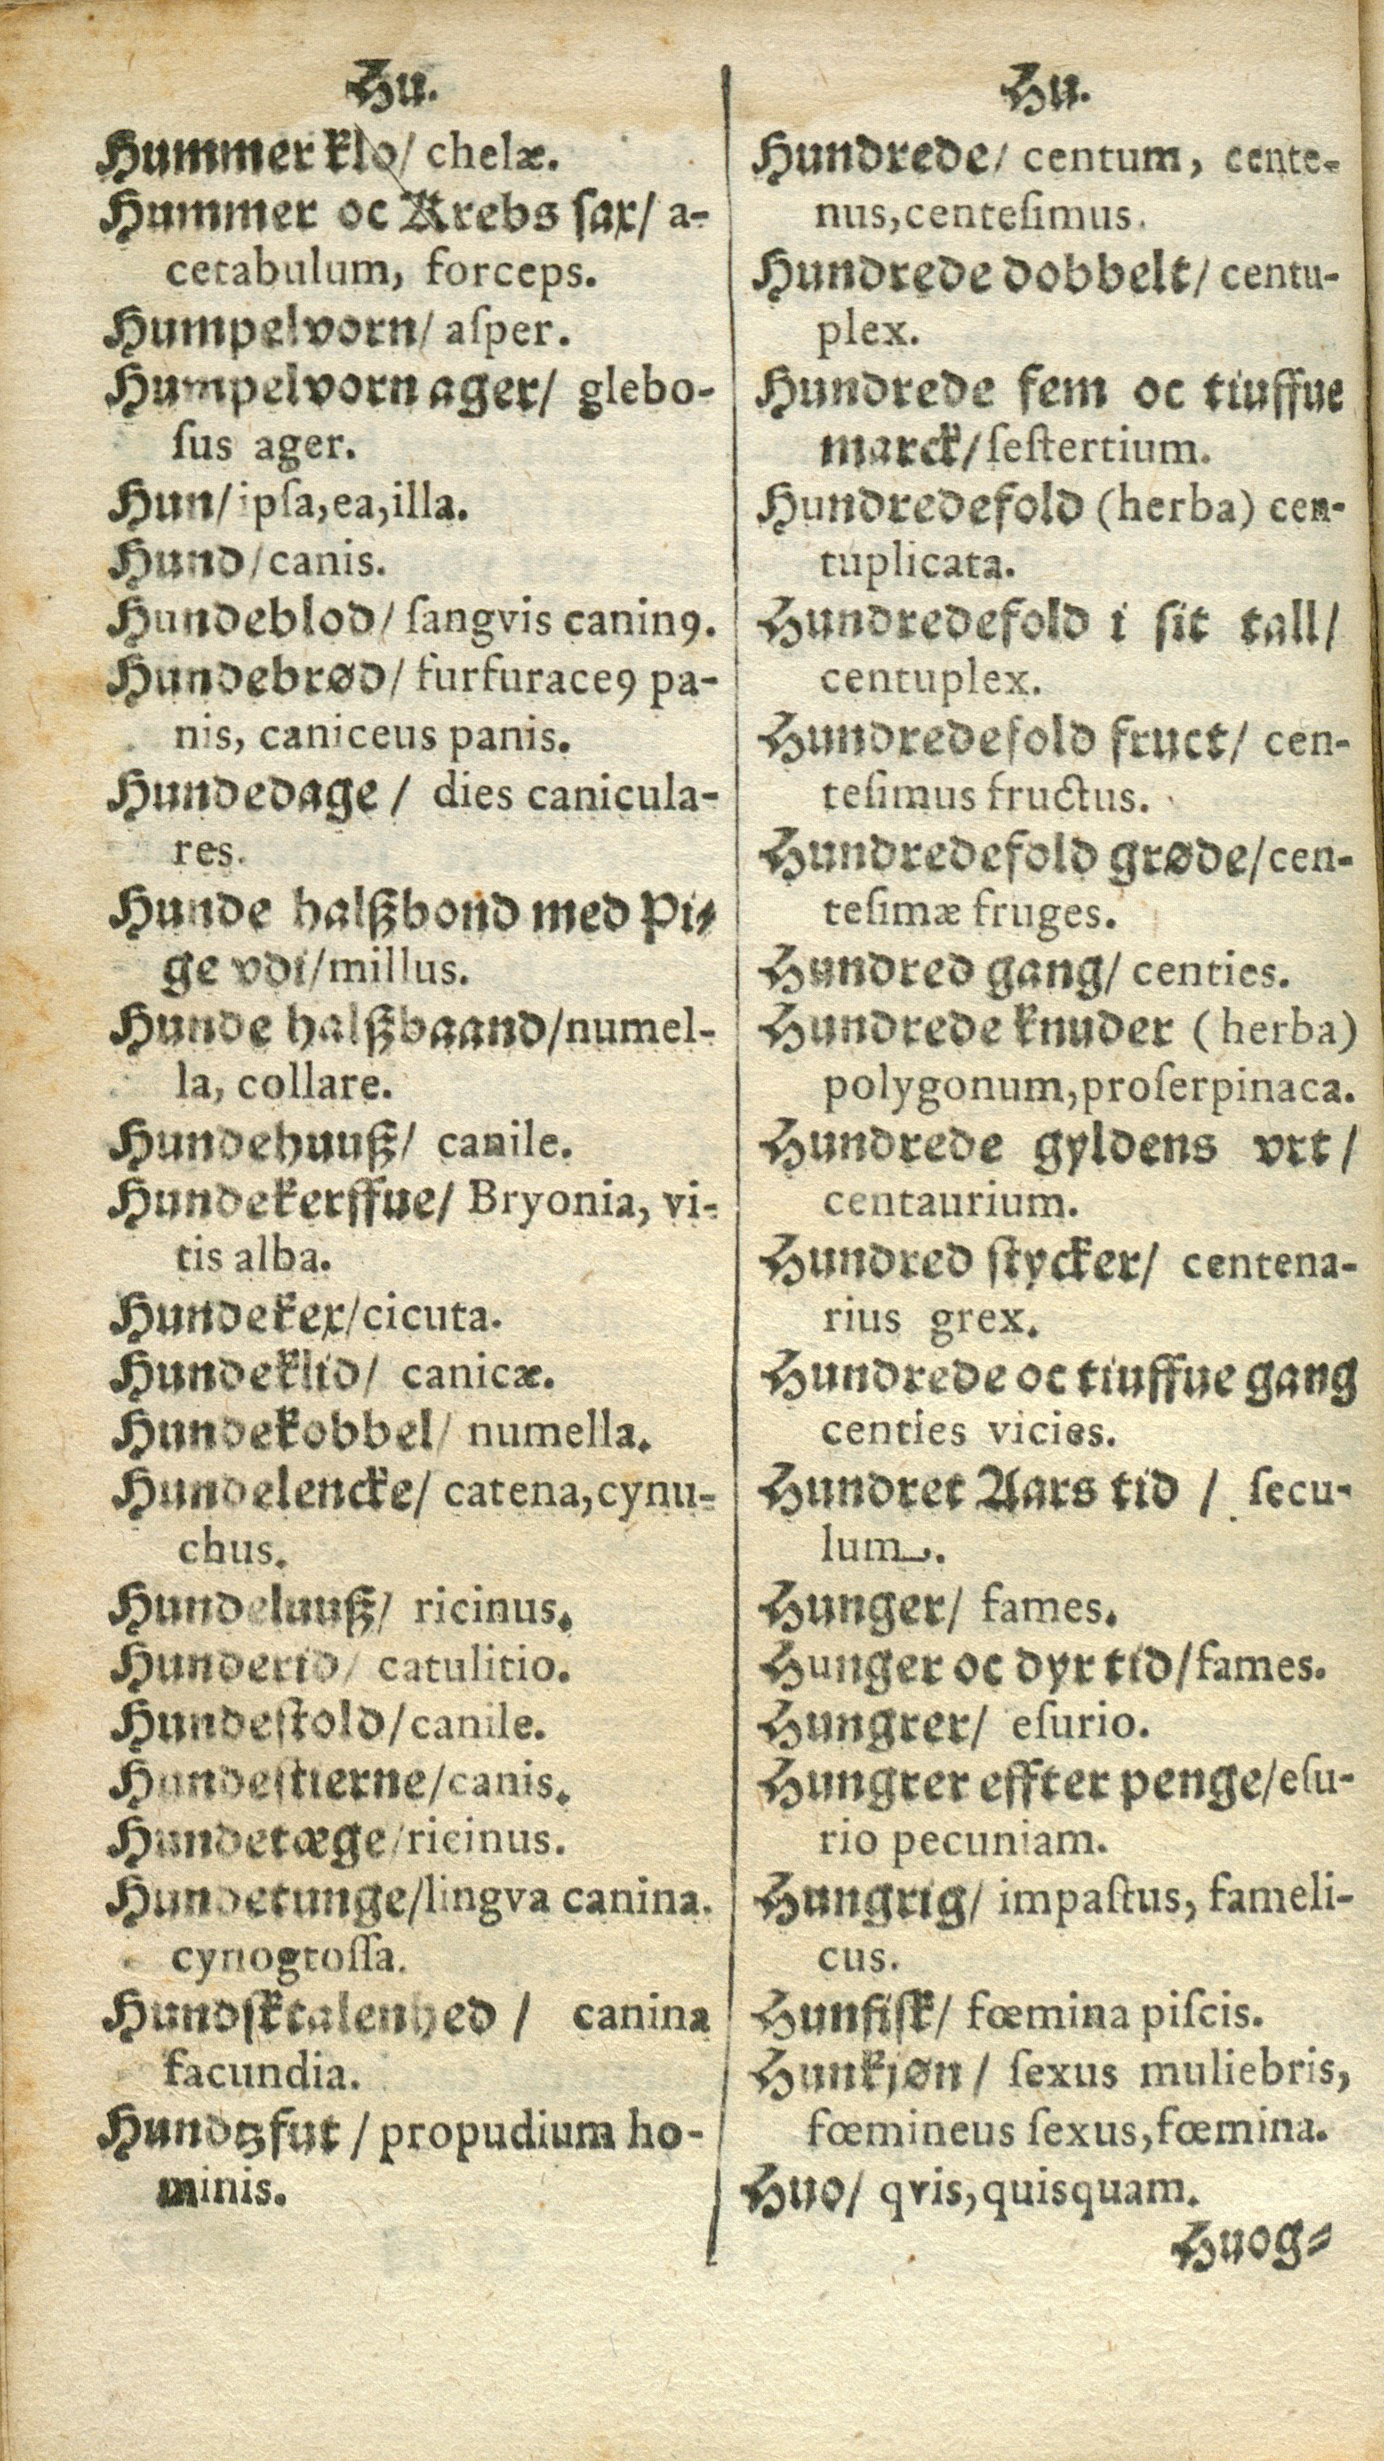 Hu.
Hummer klo/ chelæ.
Hummer oc Krebs sax/ a-
cetabulum, forceps.
Humpelvorn/ aſper.
Humpelvorn ager/ glebo-
ſus ager.
Hun/ ipſa, ea, illa.
Hund/ canis.
Hundeblod/ ſangvis caninꝰ.
Hundebrød/ furfuraceꝰ pa-
nis, caniceus panis.
Hundedage / dies canicula-
res.
Hunde halßbond med Pi-
ge vdi/ millus.
Hunde halßbaand/ numel-
la, collare.
Hundehuuß/ canile.
Hundekerffue/ Bryonia, vi-
tis alba.
Hundekex/ cicuta.
Hundeklid/ canicæ.
Hundekobbel/ numella.
Hundelencke/ catena, cynu-
chus.
Hundeluuß/ ricinus.
Hunderid/ catulitio.
Hundeſtold/ canile.
Hundeſtierne/ canis.
Hundetæge/ ricinus.
Hundetunge/ lingva canina.
cynogtoſſa.
Hundſktalenhed / canina
facundia.
Hundtzfut / propudium ho-
minis.
Hu.
Hundrede/ centum, cente-
nus, centeſimus.
Hundrede dobbelt/ centu-
plex.
Hundrede fem oc tiuffue
marck/ ſeſtertium.
Hundredefold (herba) cen-
tuplicata.
Hundredefold i ſit tall/
centuplex.
Hundredefold fruct/ cen-
teſimus fructus.
Hundredefold grøde/ cen-
teſimæ fruges.
Hundred gang/ centies.
Hundrede knuder (herba)
polygonum, proſerpinaca.
Hundrede gyldens vrt/
centaurium.
Hundred ſtycker/ centena-
rius grex.
Hundrede oc tiuffue gang
centies vicies.
Hundret Aars tid / ſecu-
lum.
Hunger/ fames.
Hunger oc dyr tid/ fames.
Hungrer/ eſurio.
Hungrer effter penge/ eſu-
rio pecuniam.
Hungrig/ impaſtus, fameli-
cus.
Hunfiſk/ fœmina piſcis.
Hunkjøn/ ſexus muliebris,
fœmineus ſexus, fœmina.
Huo/ qvis, quisquam.
Huog-